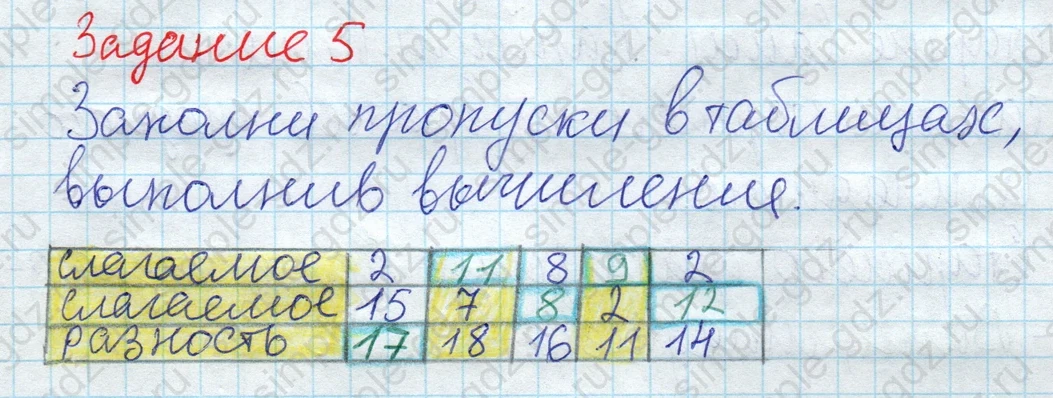 Задание 5
Заполни пропуски в таблицах,
выполнив вычисления.
слагаемое 2 11 8 9 2
слагаемое 15 7 8 2 12
разность 17 18 16 11 14